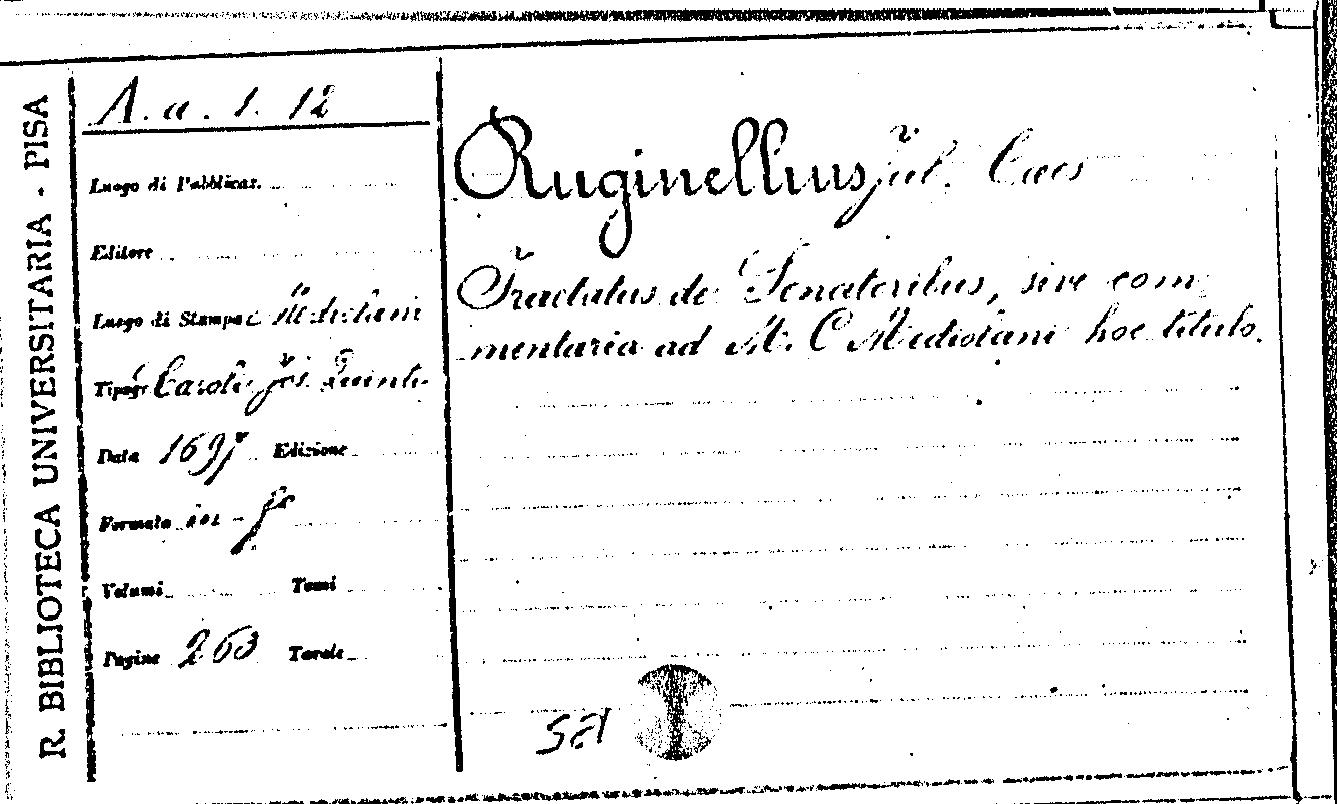 R. BIBLIOTECA UNIVERSITARIA - PISA
A. a. 1. 12
Luogo di Pubblicaz.
Editore
Luogo di Stampa Mediolani
Tipogr. Caroli Jos. Quinti
Data 1697 Edizione
Formato in - f°
Volumi Tomi
Pagine 263 Tavole
Ruginellus Jul. Caes
Tractatus de Senatoribus, sive com
mentaria ad M. C Mediolani hoc titulo.
SEI